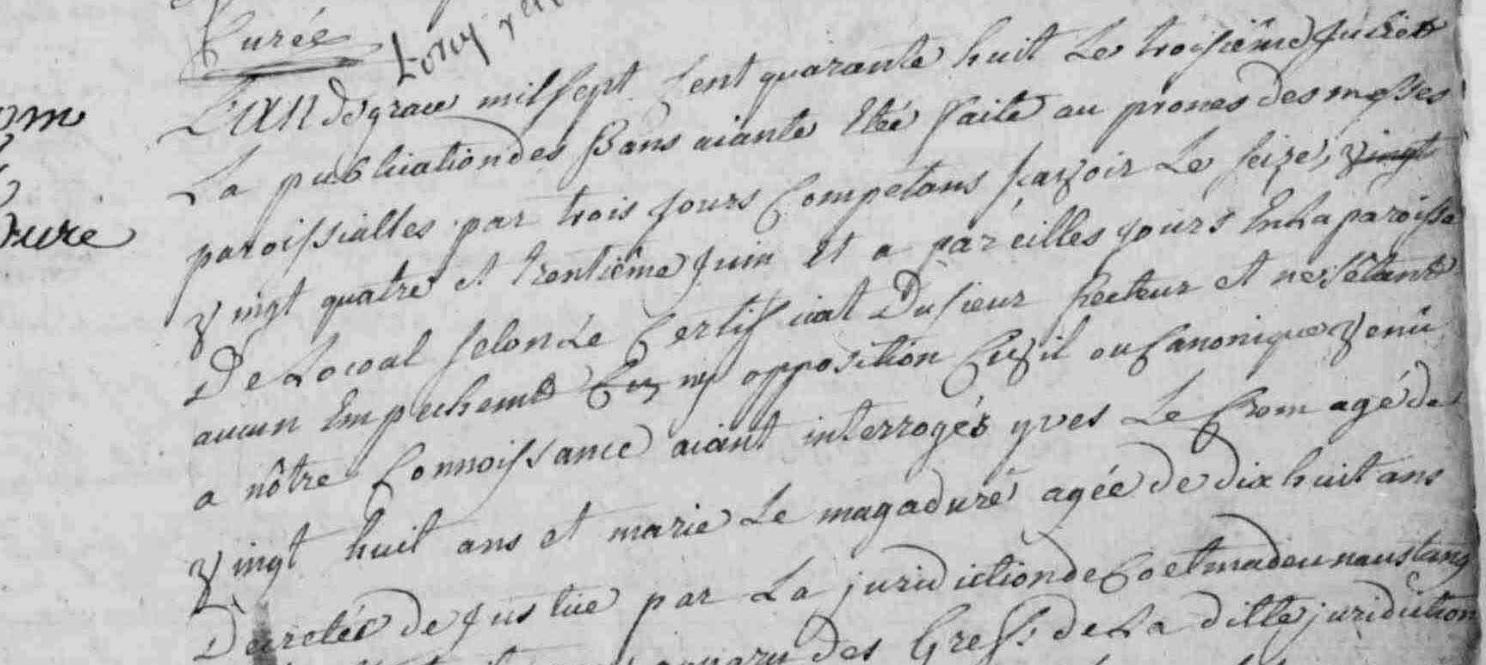 Curée
L'an de grace mil sept cent quarante huit le troisiême juillet
La publication des Bans aiante Eteé faite au prones des messes
paroissialles par trois jours Competans sçavoir Le seize, vingt
vingt quatre et trentiême juin Et a pareilles jours En La paroisse
De Locoal selon Le Certificat Du sieur Recteur et ne s'êtant
aucun Empechemt ny opposition Civil ou Canonique venû
a nôtre Connoissance aiant interrogés yves Le Crom agé de
ure
vingt huit ans et marie Le magaduré agée de dix huit ans
Decretée de justice par La juridiction de Coetmadeu naustang
des Gref. de La ditte juridiction